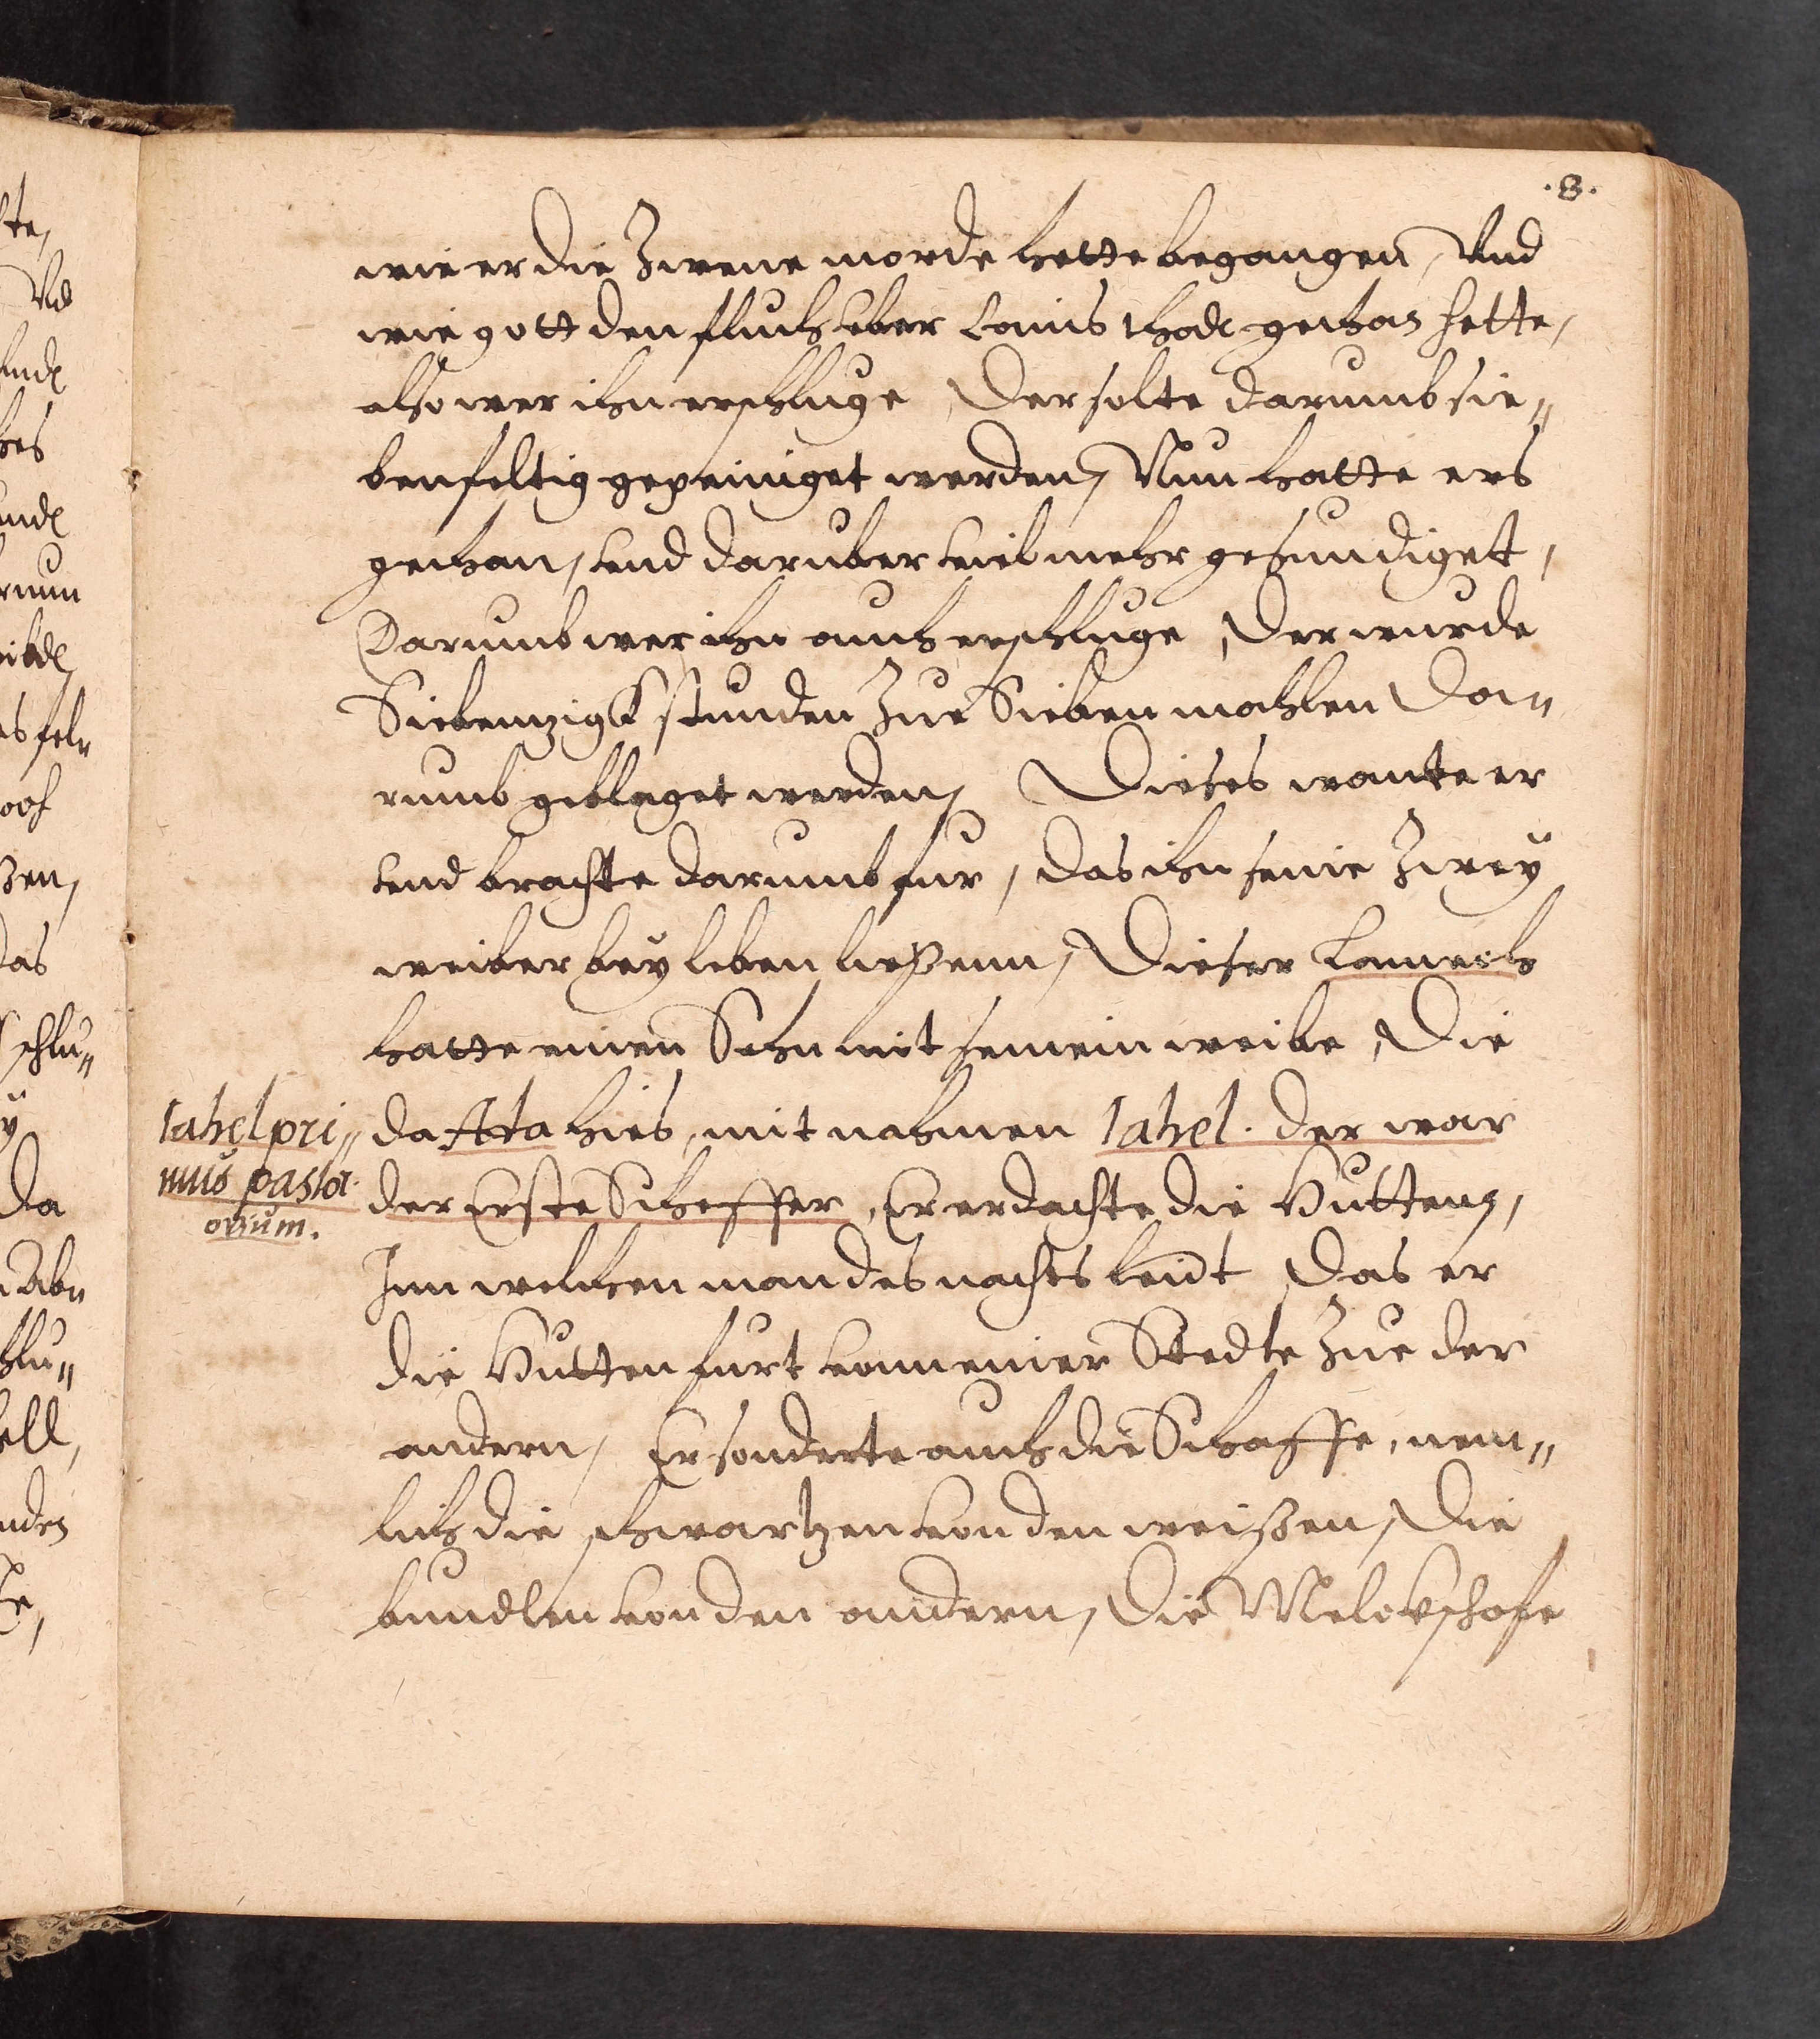 .8.
wie er die Zwene morde hette begangen, Vnd
wie gott den fluch vber Cains thodt gethan hette,
also wer ihn erschluge, Der solte darumb sie„
benfeltig gepeiniget werden, Nun hatte ers
gethan, vnd daruber viel mehr gesundiget,
Darumb wer ihn auch erschluge, Der wurde
Siebenzigk stunden Zue Sieben mahlen Da„
rumb geblaget werden, Dieses wante er
vnd brachte darumb fur, das ihn seine Zwey
weiber bey leben ließenn, Dieser Lamech
hatte einen Sohn mit seinem weibe, Die
da Ada hies, mit nahmen Iahel. der war
der Erste Scheffer, Er erdachte die Hutten,
Inn welchen man des nachts leudt, Das er
die Hutten furt von einer Stedte Zue der
andern, Er sonderte auch die Schaffe, nem„
lich die schwartzen von den weißen, Die
bundten von den andern, Die Melckschafe
Iahel pri„
mus pastor
ovium.
te,
Vnd
das
schlu„
da
ell,